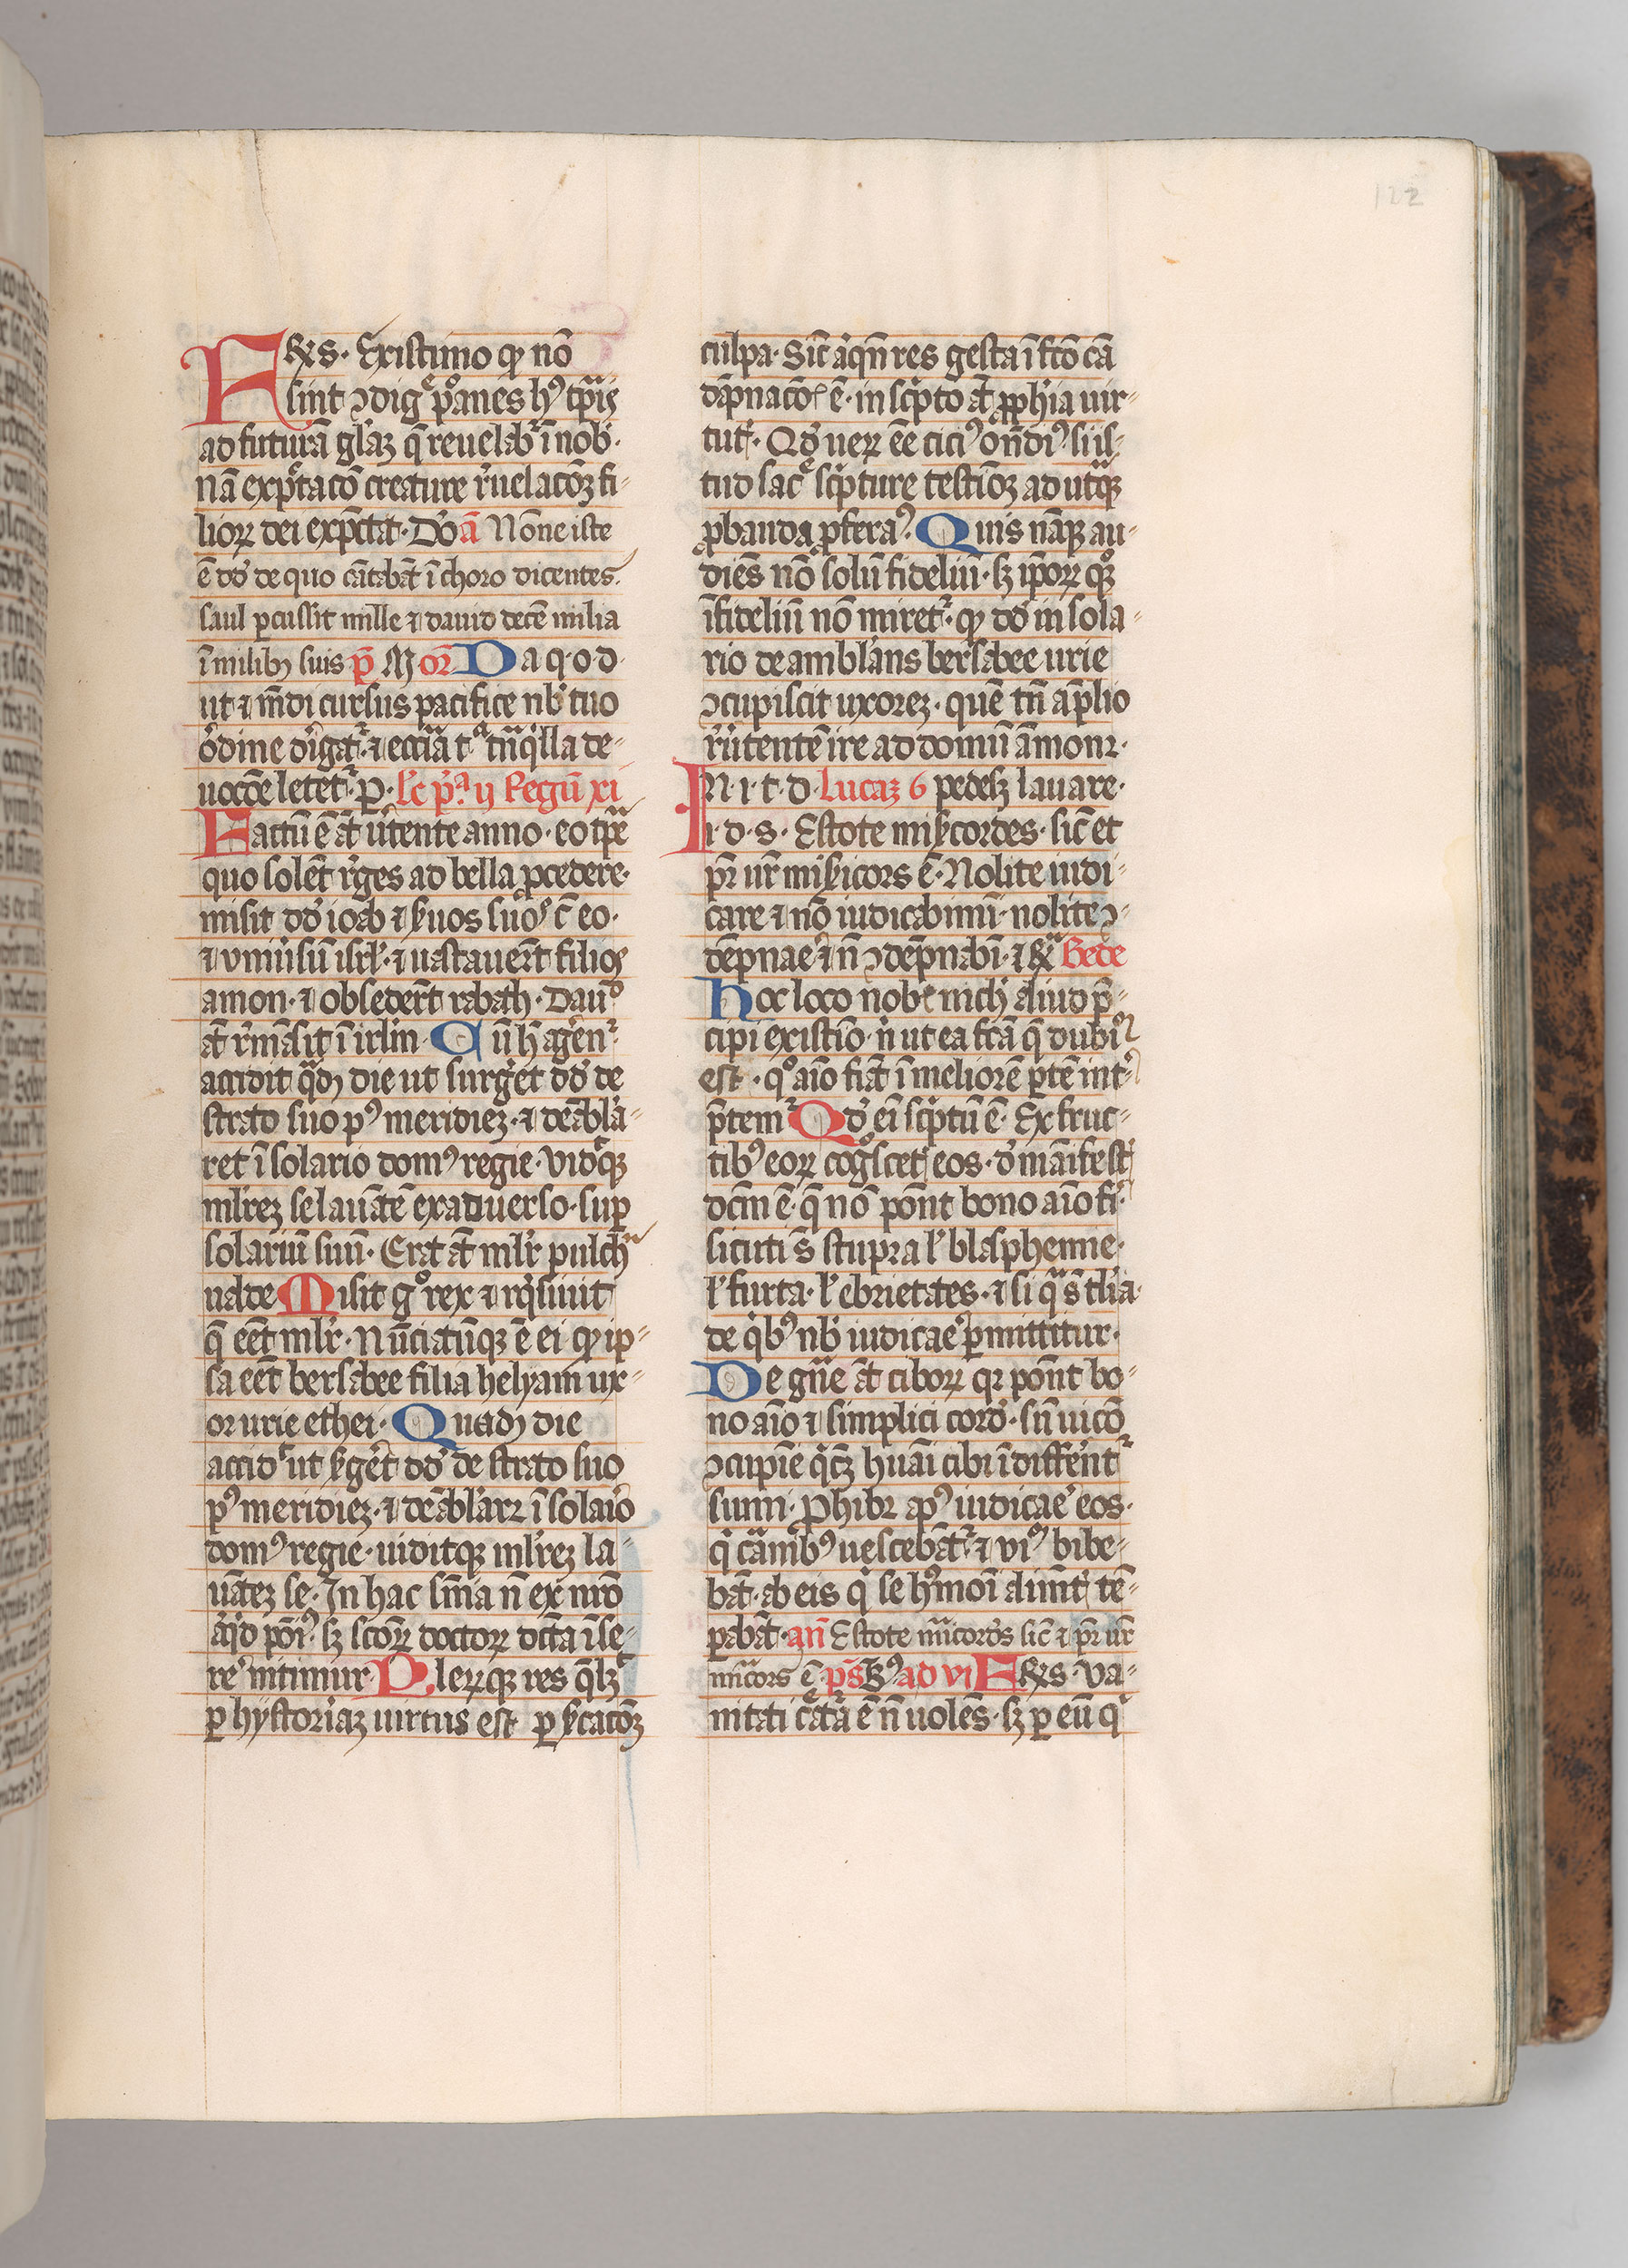 122
Frēs. Existimo ꝙ nō
sint ↄdigᵉ pºanes hꝰ tp̄is
ad futurā gl̓aꝫ q̄ reuelabr̓ ī nob̓.
Nā exp̄tacō creature r̓uelacōꝫ fi-
lioꝝ dei exp̄ctāt. Do ā Nōne iste
ē dd̓ de quo cātabāt ī choro dicentes.
saul ꝑcussit mille ⁊ dauid decē milia
ī milibꝫ suis p̄ᷤ M or̄ Da q. o. d.
ut ⁊ mn̄di cursus pacifice nb̓ tuo
ordine dr̓igat᷑. ⁊ ecciā tᵃ tn̄q̓lla de-
uocōe letet᷑. ꝑ. lc̄ p̓ᵃ. ij Regū xi
Factū ē āt ur̓tente anno. eo tp̄e
quo solēt r̓ges ad bella ꝓcedere.
misit dd̓ ioab ⁊ ẜuos suos c̄ eo.
⁊ vniùsū isrl̓. ⁊ uastauer̄t filios
amon. ⁊ obseder̄t rabath. Dauᵈ
āt r̓māsit ī irl̓m. Cū h̄ ager̓en᷑.
accidit qᵃdꝫ die ut surger̓et dd̓ de
strato suo pꝰ meridieꝫ. ⁊ deābla-
ret ī solario domꝰ regie. vidᵗqꝫ
ml̓reꝫ se lauātē ex aduerso. suꝑ
solariū suū. Erat āt ml̓r pulchᵃ
ualde Misit gº rex ⁊ rq̓siuit
q̄ eēt ml̓r. Nūciatūqꝫ ē ei ꝙ ip-
sa eēt bersabee filia helyam ux-
or urie ethei. Quadꝫ die
accidᵗ ut ẜger̓et dd̓ de strato suo
pꝰ meridieꝫ. ⁊ deābl̓arꝫ ī solaio
domꝰ regie. uiditqꝫ ml̓reꝫ la-
uāteꝫ se. In hac sn̄ia n̄ ex nr̄o
aliq̓d pōīꝰ. sꝫ scōꝝ doctoꝝ dc̄ta īse-
re̓ nitimur Pleꝝqꝫ res q̄lꝫ
ꝑ hystoriaꝫ uirtus est ꝑ ẜcacōꝫ
culpa. Sic̄ aliqn̄ res gesta ī fcō cā
dāpnacō¹ ē. in sc̓pto āt ꝓph̓ia uir-
tut᷑. Qd̓ ueꝝ eē ciciꝰ on̄diꝰ. si is-
tud sacᵉ sc̓pture testīoꝫ ad utᵃqꝫ
ꝓbanda ꝓferaꝰ. Quis nāqꝫ au-
diēs nō solū fideliū. sꝫ ip̄oꝝ qºqꝫ
īfideliū nō miret᷑. ꝙ dd̓ in sola-
rio deambl̓ans bersabee urie
ↄcupiscit uxoreꝫ. quē tn̄ a p̄lio
r̓u̓tentē ire ad domū āmonꝫ.
In. i. t. d. Lucaꝫ 6 pedesꝫ lauare.
i. d. s. Estote mis̓cordes. sic̄ et
pr̄ ur̄ mis̓icors ē. Nolite iudi-
care ⁊ nō iudicabimī. nolite ↄ-
dēpnare ⁊ n̄ ↄdēpnabī. ⁊ rᵃ Bede
Hoc loco nob̓ nich̓ aliud p̄-
cipi existīo. n̓ ut ea fcā q̄ dubiū
est. qº aīo fiāt ī meliorē ꝑtē int̓-
p̄tem᷑ Qd̓ eī sc̓ptū ē. Ex fruc-
tibꝰ eoꝝ cogºscet᷑ eos. d̓ māifest᷑
dcm̄ ē. q̄ nō pōnt bono aīo fi.
sicuti s̄ stupra l̓ blasphemie.
l̓ furta. l̓ ebrietates. ⁊ si qᵃ s̄ tl̓ia.
de q̓bꝰ nb̓ iudicare ꝑmittitur.
De gn̄e āt ciboꝝ qꝛ pōnt bo-
no aīo ⁊ simplici cord̓. sn̄ uicō
ↄcupīe q̓cqꝫ huāi cibi īdiffer̓ent᷑
sumi. Phibꝫ apꝰ iudicare eos.
q̓ carnibꝰ uescebāt᷑. ⁊ viº n̄ bibe-
bāt. ab eis q̓ se hꝰmōi alim̄t᷑ tē-
ꝑabāt. an̄ Estote mīcord̓s sic̄ ⁊ pr̄ ur̄
mīcors ē. p̄s Bꝰ ad vi Frēs. Va-
nitati c̄atᵃa ē n̄ uolēs. sꝫ ꝑ eū qͥ